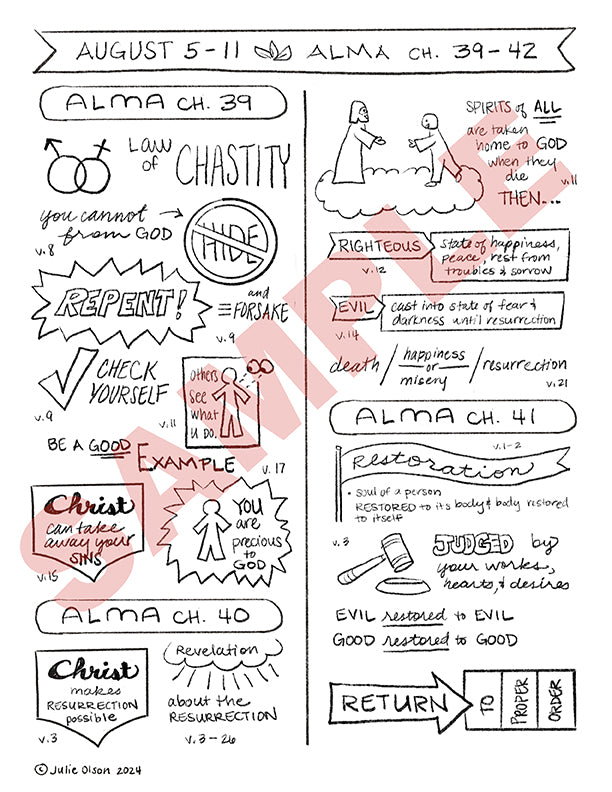 AUGUST 5-11 ALMA CH. 39-42
ALMA CH. 39
LAW
of
CHASTITY
you cannot
from GOD
HIDE
v. 8
REPENT!
and
FORSAKE
v. 9
CHECK
YOURSELF
v. 9
others
see
what
u do.
v.11
BE A GOOD
EXAMPLE
v. 17
Christ
can take
away your
SINS
v.15
YOU
are
precious
to
GOD
ALMA CH. 40
Christ
makes
RESURRECTION
possible
v.3
Revelation
about the
RESURRECTION
v. 3-26
SPIRITS of ALL
are taken
home to GOD
when they
die
v.11
THEN...
RIGHTEOUS
v.12
state of happiness,
peace, rest from
troubles & sorrow
EVIL
v.14
cast into state of fear &
darkness until resurrection
death / happiness
or
misery / resurrection
v.21
ALMA CH. 41
v.1-2
Restoration
• soul of a person
RESTORED to its body & body restored
to itself
v. 3
JUDGED by
your works,
hearts, & desires
EVIL restored to EVIL
GOOD restored to GOOD
RETURN
TO
PROPER
ORDER
SAMPLE
© Julie Olson 2024